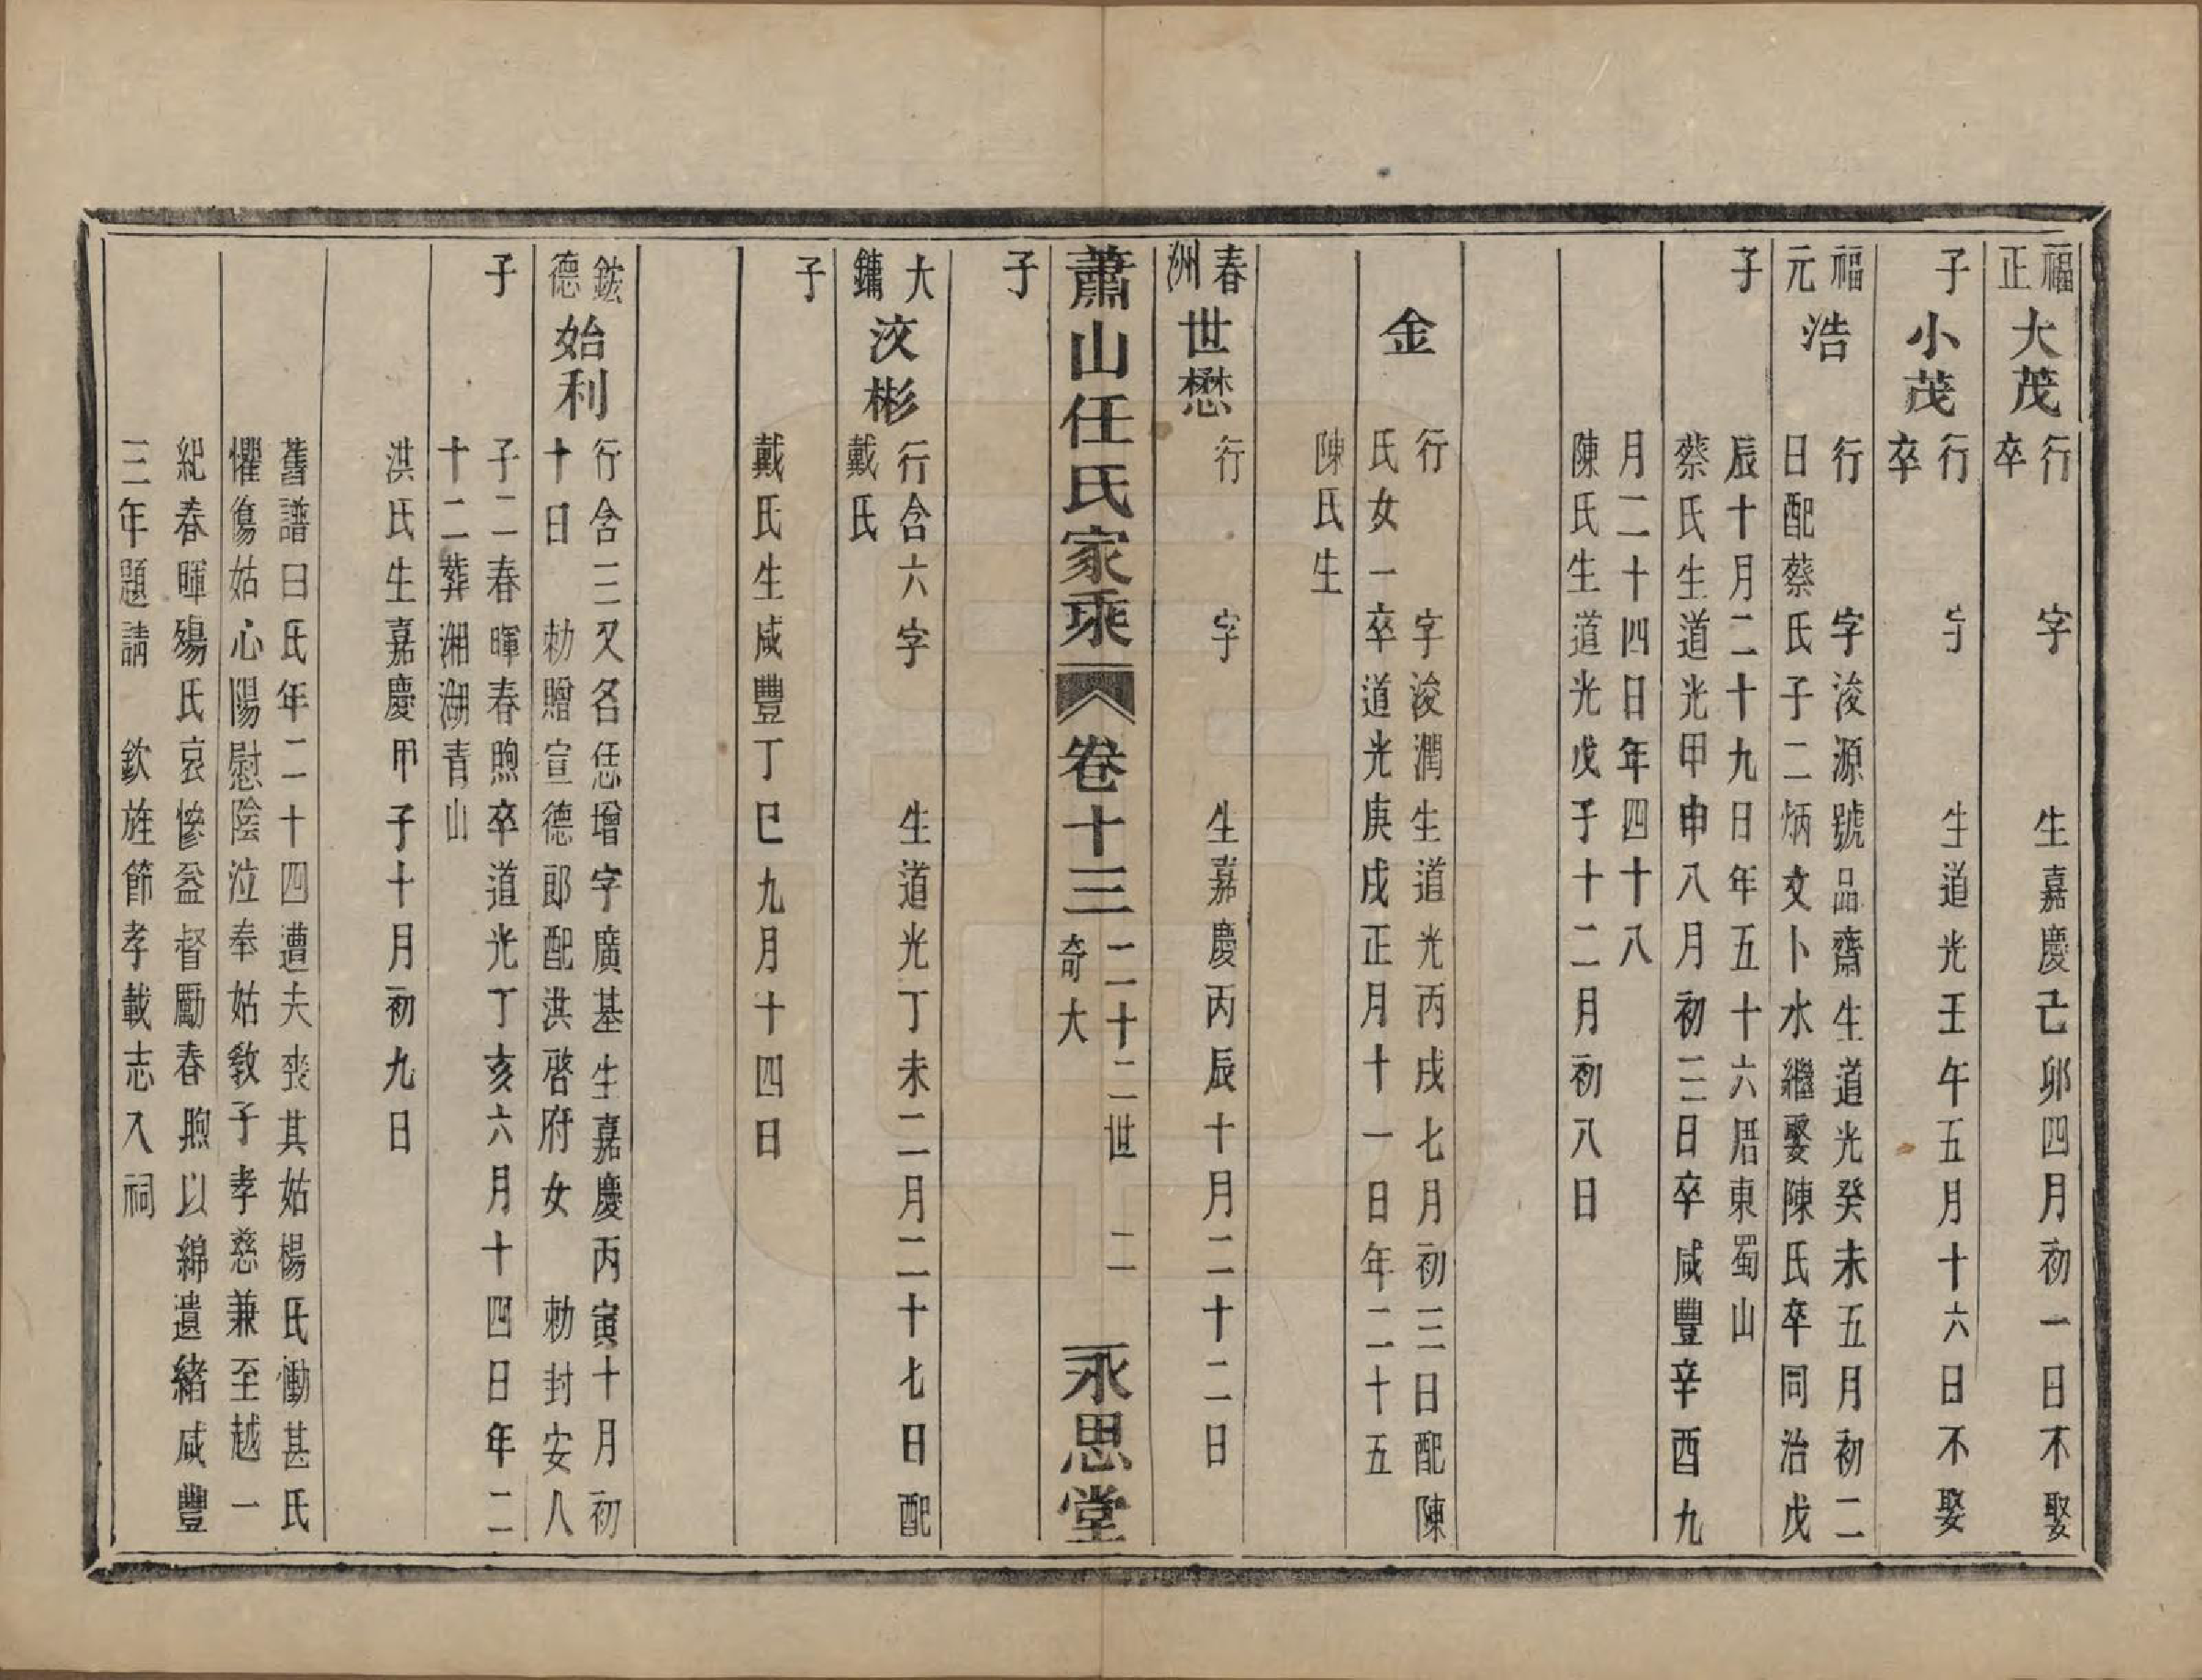 福正 大茂 行 字 生嘉慶己卯四月初一日不娶
卒
子 小茂 行 字 生道光壬午五月十六日不娶
卒
福元 浩 行 字浚源號品齋生道光癸未五月初二
日配蔡氏子二炳文卜水繼娶陳氏卒同治戊
子 辰十月二十九日年五十六厝東蜀山
蔡氏生道光甲申八月初三日卒咸豐辛酉九
月二十四日年四十八
陳氏生道光戊子十二月初八日
金 行 字浚潤生道光丙戌七月初三日配陳
氏女一卒道光庚戌正月十一日年二十五
陳氏生
春洲 世懋 行 字 生嘉慶丙辰十月二十二日
蕭山任氏家乘 卷十三 二十二世 二 奇大 永思堂
子
大鏞 汶彬 行含六字 生道光丁未二月二十七日配
戴氏
子
戴氏生咸豐丁巳九月十四日
鋐德 始利 行含三又名恁增字廣基生嘉慶丙寅十月初
十日 勅贈宣德郎配洪啓府女 勅封安人
子 子二春暉春煦卒道光丁亥六月十四日年二
十二葬湘湖青山
洪氏生嘉慶甲子十月初九日
舊譜曰氏年二十四遭夫喪其姑楊氏慟甚氏
懼傷姑心陽慰陰泣奉姑敎子孝慈兼至越一
紀春暉殤氏哀慘益督勵春煦以綿遺緒咸豐
三年題請 欽旌節孝載志入祠